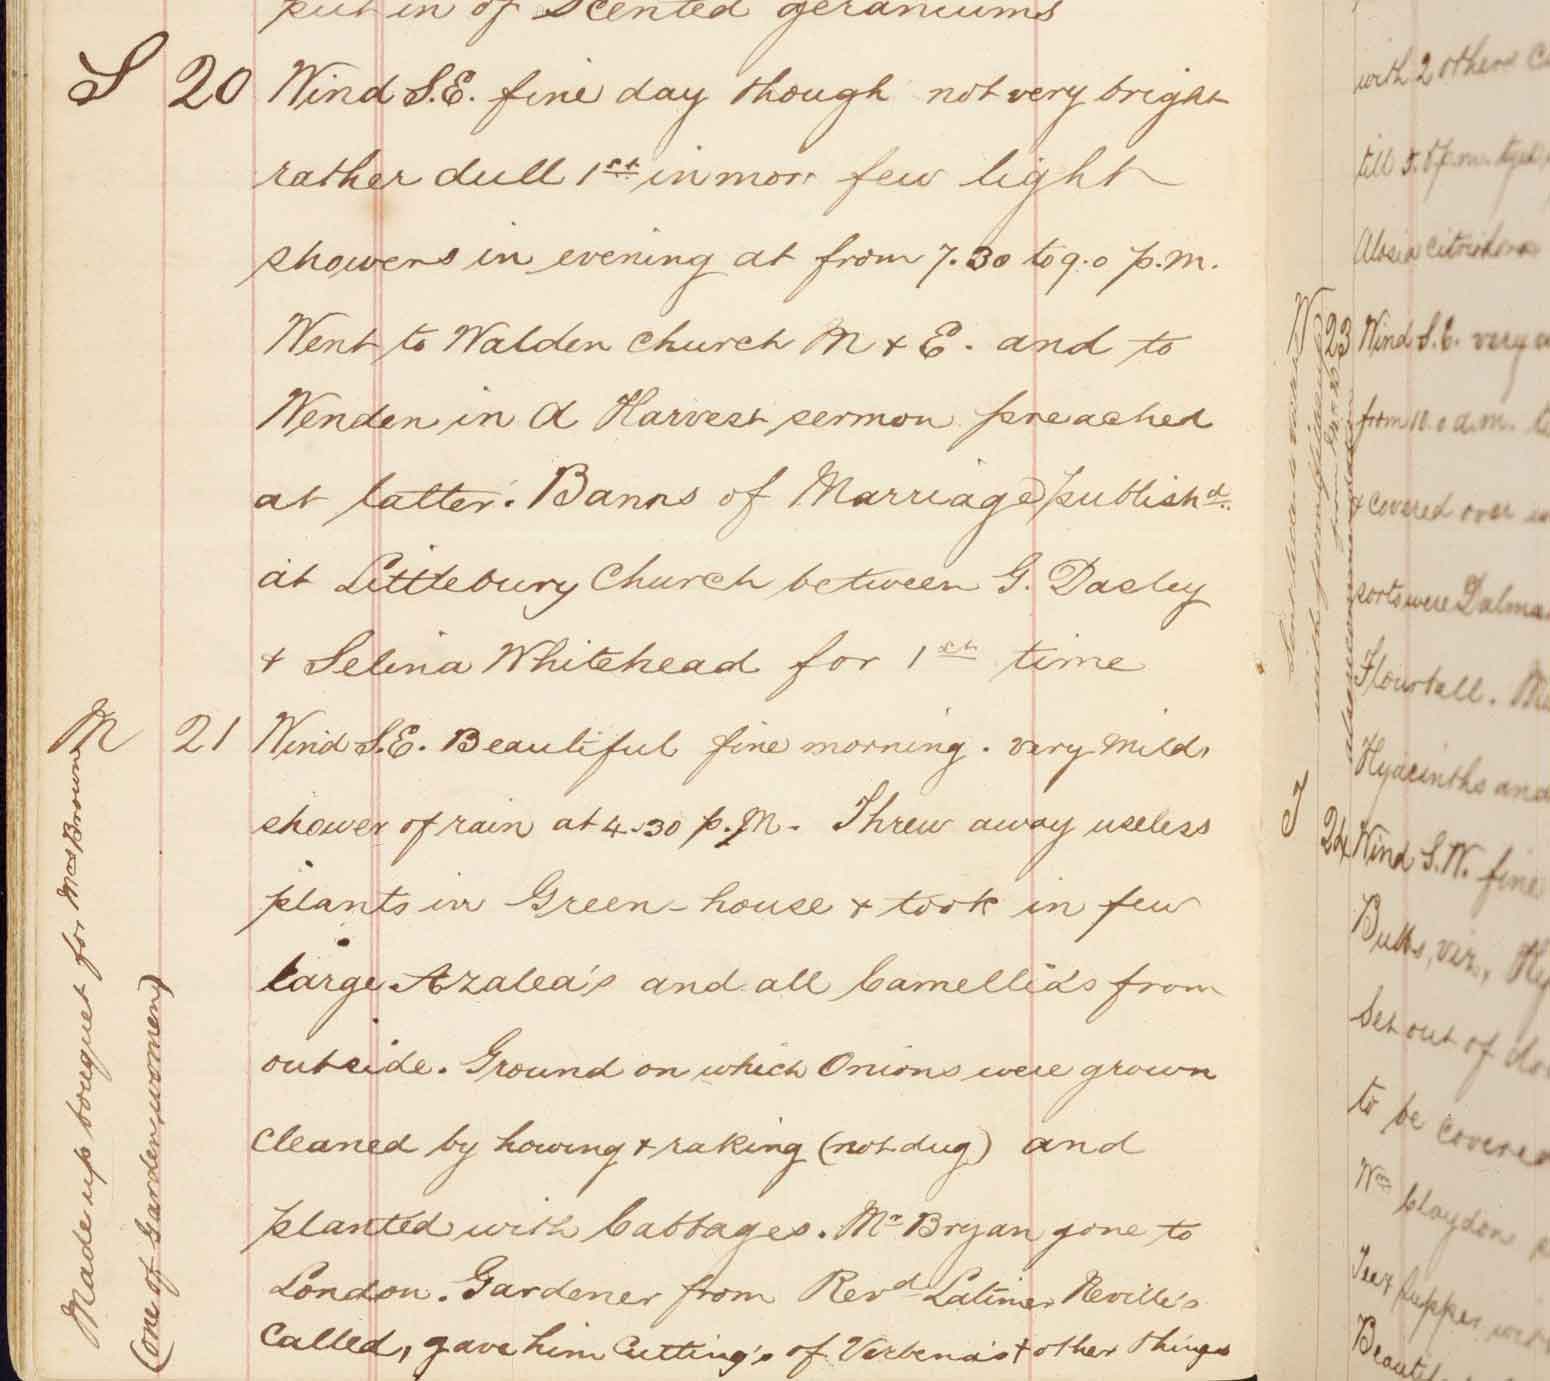 put in of Scented geraniums
S 20 Wind S.E. fine day though not very bright
rather dull 1st in mor: few light
showers in evening at from 7.30 to 9.0 p.m.
Went to Walden church M & E. and to
Wenden in A Harvest sermon preached
at latter. Banns of Marriage publishd.
at Littlebury Church between G. Dasley
& Selina Whitehead for 1st time
M 21 Wind S.E. Beautiful fine morning. very mild,
shower of rain at 4.30 p.M. Threw away useless
plants in Green-house & took in few
large Azalea's and all Camellia's from
outside. Ground on which Onions were grown
cleaned by howing & raking (not dug) and
planted with Cabbages. Mr Bryan gone to
London. Gardener from Revd Latimer Neville's
called, gave him Cutting's of Verbena's & other things
Made up bouquet for Mrs Brown
(one of Garden women)
with 2 others
till 5.0 p.m.
W 23 Wind S.E. very
from 10.0 a.m.
& covered over
sorts were
Flourball.
Hyacinths and
T 24 Wind S.W. fine
Bulbs, viz.,
Set out of
to be covered
Wm Claydon